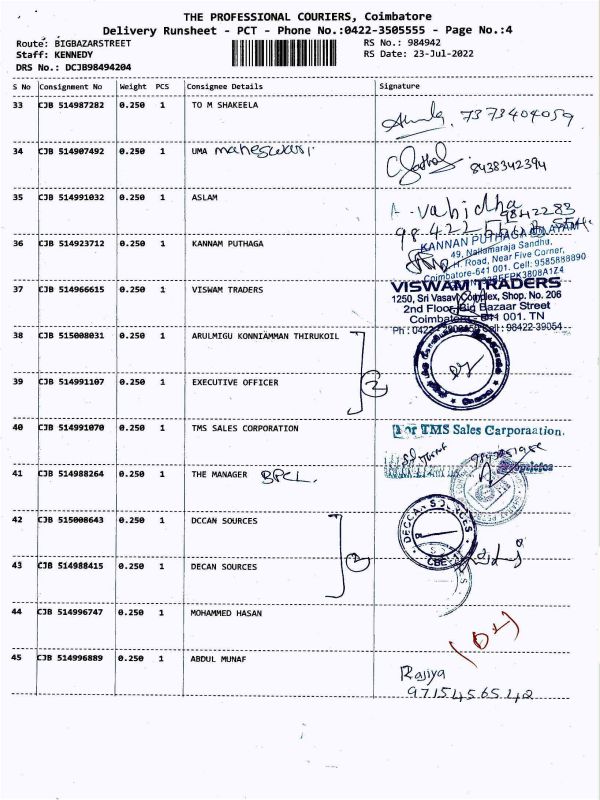 THE PROFESSIONAL COURIERS, Coimbatore
Delivery Runsheet - PCT - Phone No.:0422-3505555 - Page No.:4
Route: BIGBAZARSTREET
RS No.: 984942
Staff: KENNEDY
RS Date: 23-Jul-2022
DRS No.: DCJB98494204
S No Consignment No Weight PCS Consignee Details Signature
33 CJB 514987282 0.250 1 TO M SHAKEELA
7373404059
34 CJB 514907492 0.250 1 UMA maheswari.
8438342394
35 CJB 514991032 0.250 1 ASLAM
A. Vahidha
9842283
36 CJB 514923712 0.250 1 KANNAM PUTHAGA
KANNAN PUTHAGA NILAYAM
49, Nallamaraja Sandhu,
H. Road, Near Five Corner,
Coimbatore-641 001. Cell: 9585888890
37 CJB 514966615 0.250 1 VISWAM TRADERS
VISWAM TRADERS
1250, Sri Vasavi Complex, Shop. No. 206
2nd Floor, Big Bazaar Street
Coimbatore - 641 001. TN
Cell : 98422 39054
38 CJB 515008031 0.250 1 ARULMIGU KONNIAMMAN THIRUKOIL
39 CJB 514991107 0.250 1 EXECUTIVE OFFICER
2
40 CJB 514991070 0.250 1 TMS SALES CORPORATION
For TMS Sales Carporaation.
41 CJB 514988264 0.250 1 THE MANAGER BPCL.
42 CJB 515008643 0.250 1 DCCAN SOURCES
DECCAN SOURCES
CBE-1
43 CJB 514988415 0.250 1 DECAN SOURCES
2
44 CJB 514996747 0.250 1 MOHAMMED HASAN
45 CJB 514996889 0.250 1 ABDUL MUNAF
Rajiya